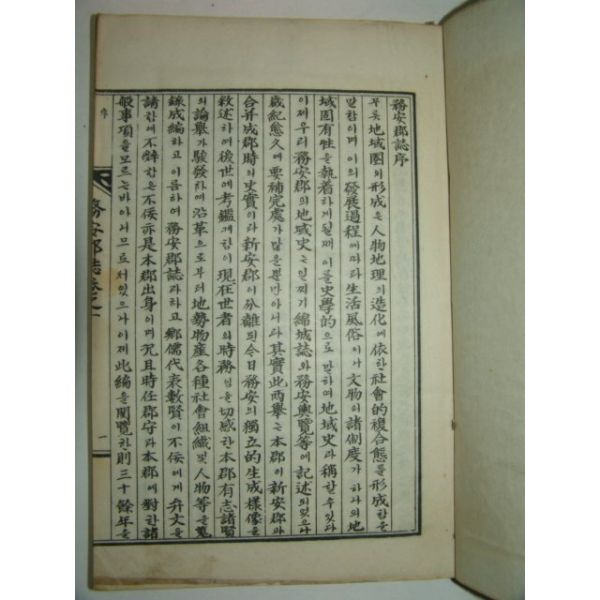 務安郡誌序
무릇 地域圈의 形成은 人物地理의 造化에 依한 社會的 複合態를 形成함을
말함이며 이의 發展過程에 따라 生活風俗이나 文物의 諸制度가 하나의 地
域固有性을 執着하게 될때 이를 史學的으로 말하여 地域史라 稱할수 있다
이제 우리 務安郡의 地域史는 일찌기 綿城誌와 務安輿覽等에 記述되있으나
歲紀愈久에 要補完處가 많을뿐만아니라 其實此兩擧는 本郡이 新安郡과
合并成郡時의 史實이라 新安郡이 分離된 今日 務安의 獨立的 生成樣像을
敘述하여 後世에 考鑑케함이 現在世者의 時務임을 切感한 本郡有志諸賢
의 論擧가 駿發하여 沿革으로부터 地勢物産各種社會組織및 人物等을 蒐
錄成編하고 이름하여 務安郡誌라하고 鄕儒代表數賢이 不佞에게 弁文을
請함에 不辭함은 不佞亦是 本郡出身이며 况且時任郡守라 本郡에 對한 諸
般事項을 모르는바 아니므로서 있으나 이제 此編을 閱覽한則 三十餘年을
序
務安郡誌卷之一
一